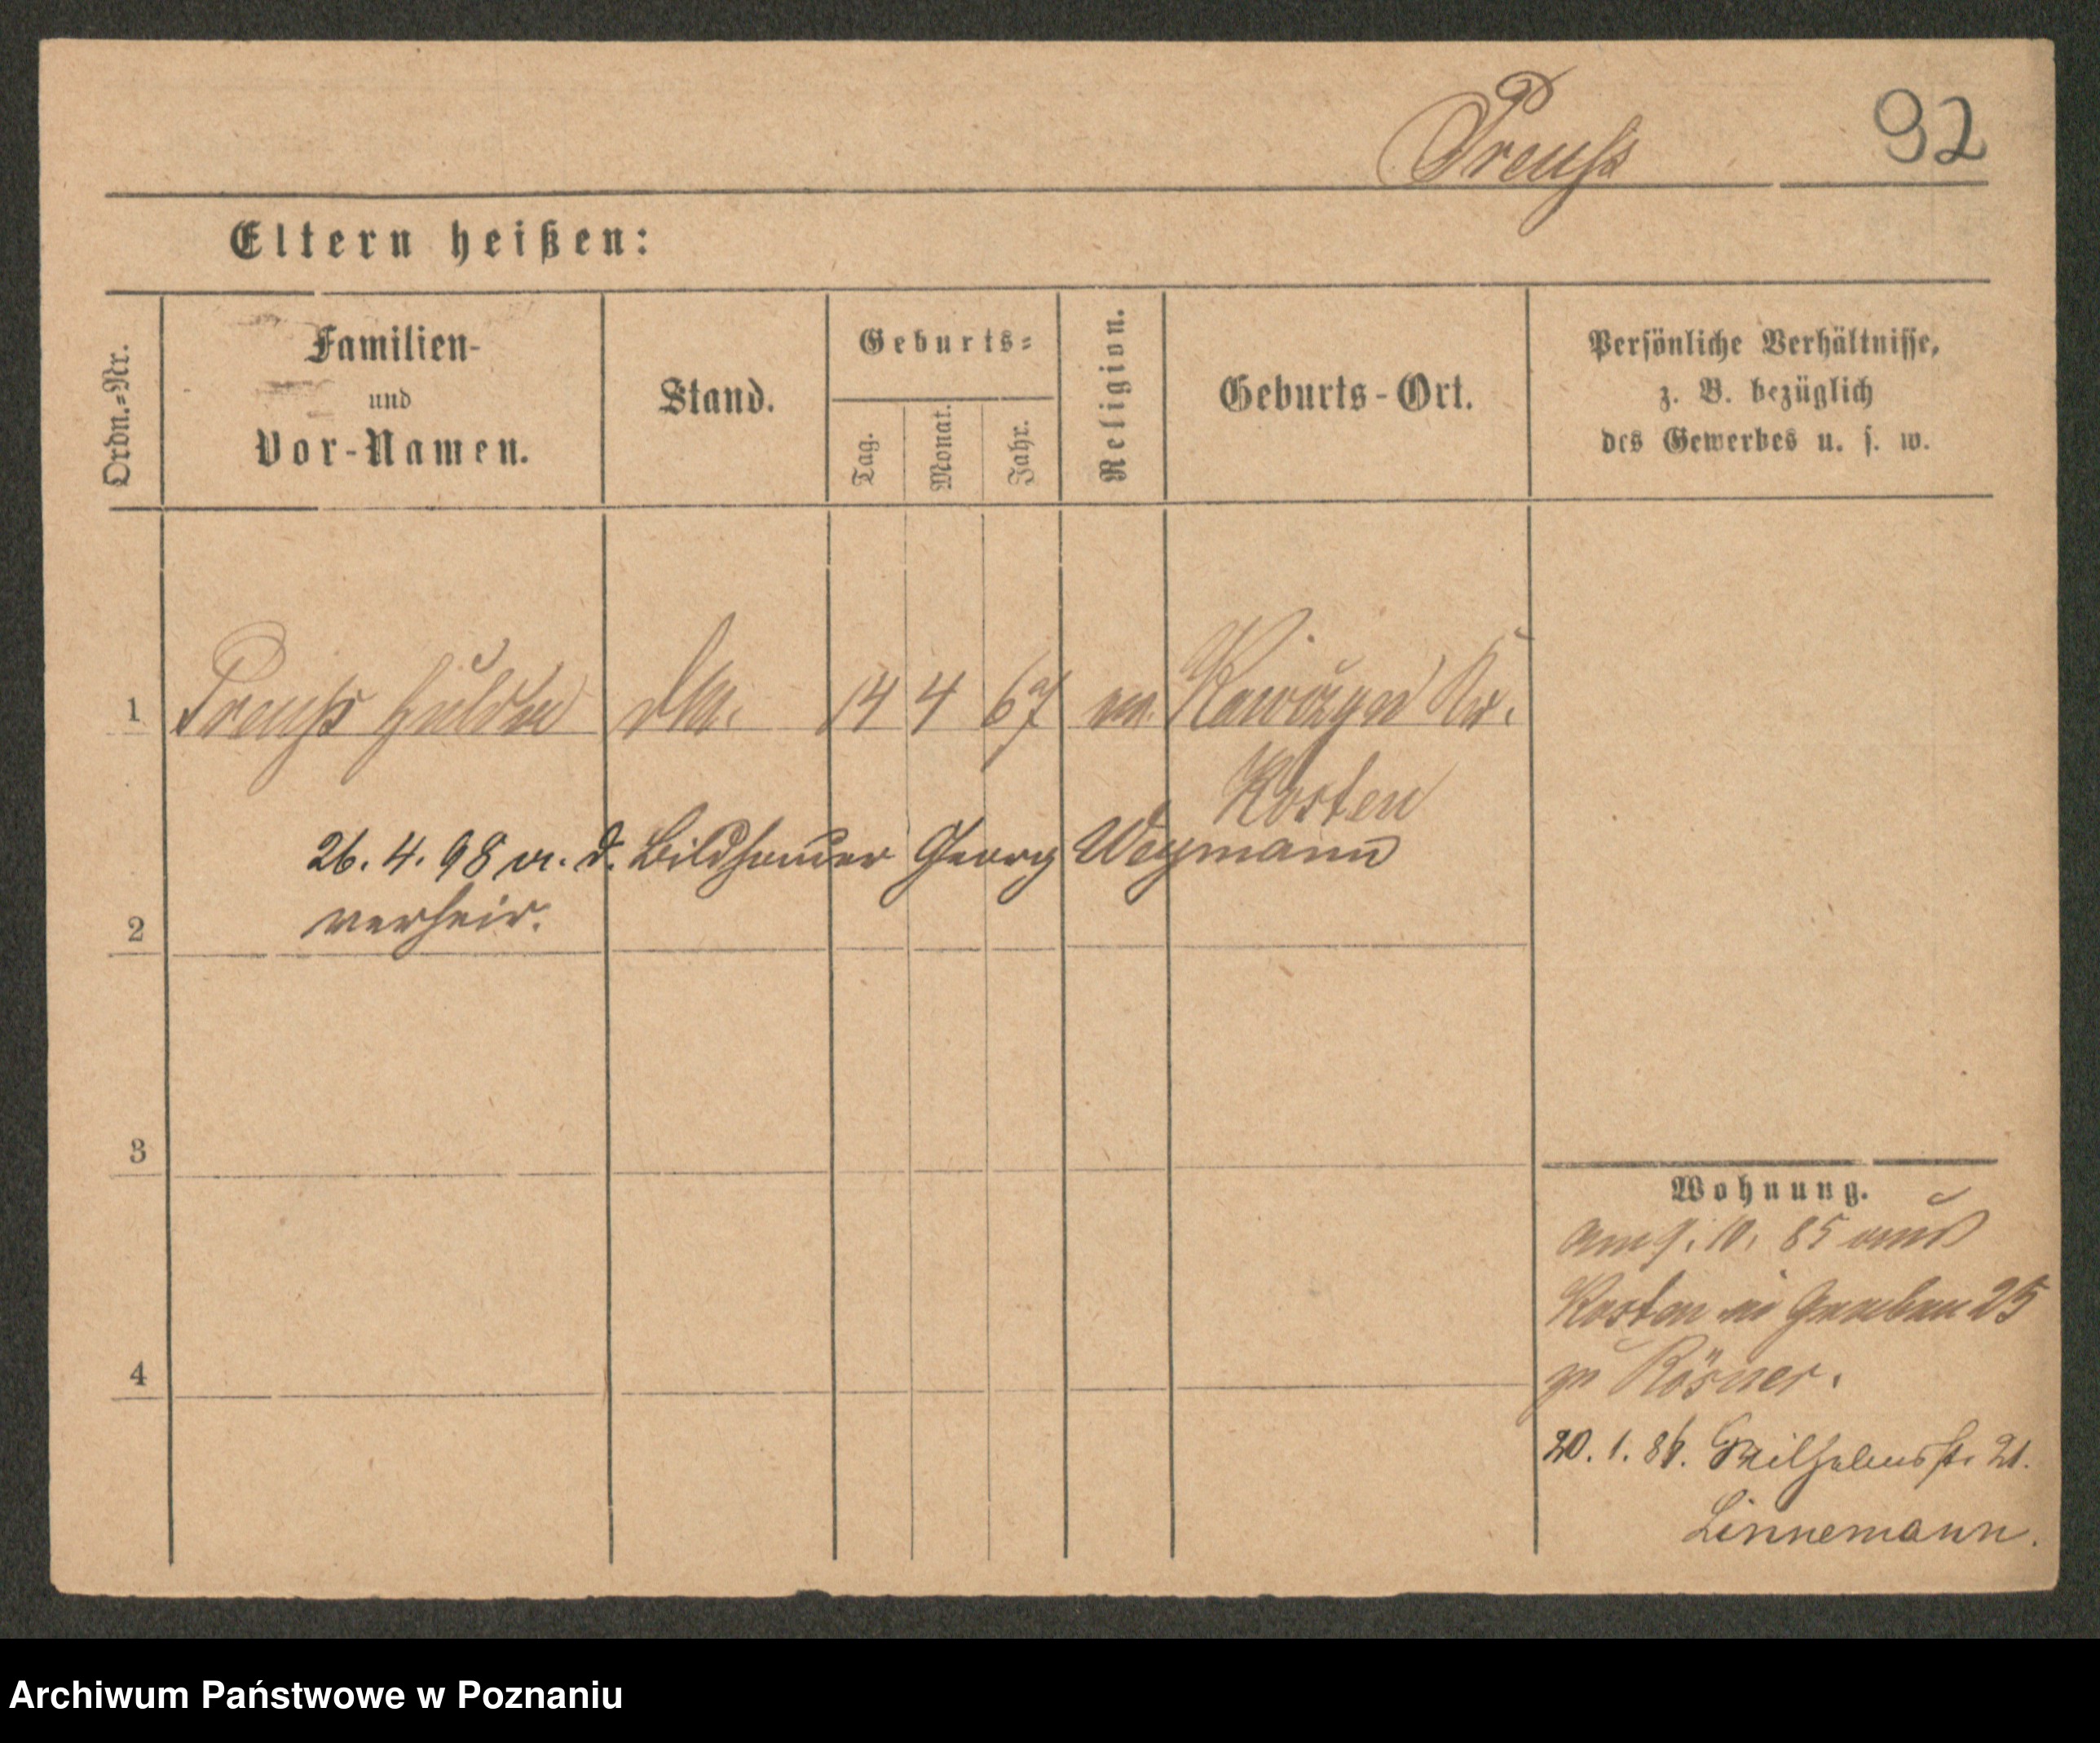 Preuß
92
Eltern heißen:
Ordn.-Nr.
Familien-
und
Vor-Namen.
Stand.
Geburts-
Tag.
Monat.
Jahr.
Religion.
Geburts-Ort.
Persönliche Verhältnisse,
z. B. bezüglich
des Gewerbes u. s. w.
1 Preuß Hulda 14 4 67 Kr.
Kosten
26. 4. 98 m. d. Bildhauer Georg Weymann
verheir.
2
3
4
Wohnung.
am 9. 10. 85 aus
Kosten Graben 25
zu Rösner.
20. 1. 86. Wilhelmsstr. 21.
Linnemann.
Archiwum Państwowe w Poznaniu